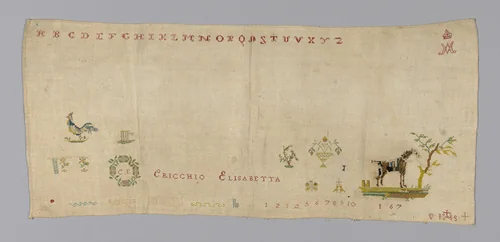 A B C D E F G H I K L M N O P Q R S T U V X Y Z
C E
CRICCHIO ELISABETTA
1 2 3 4 5 6 7 8 9 10